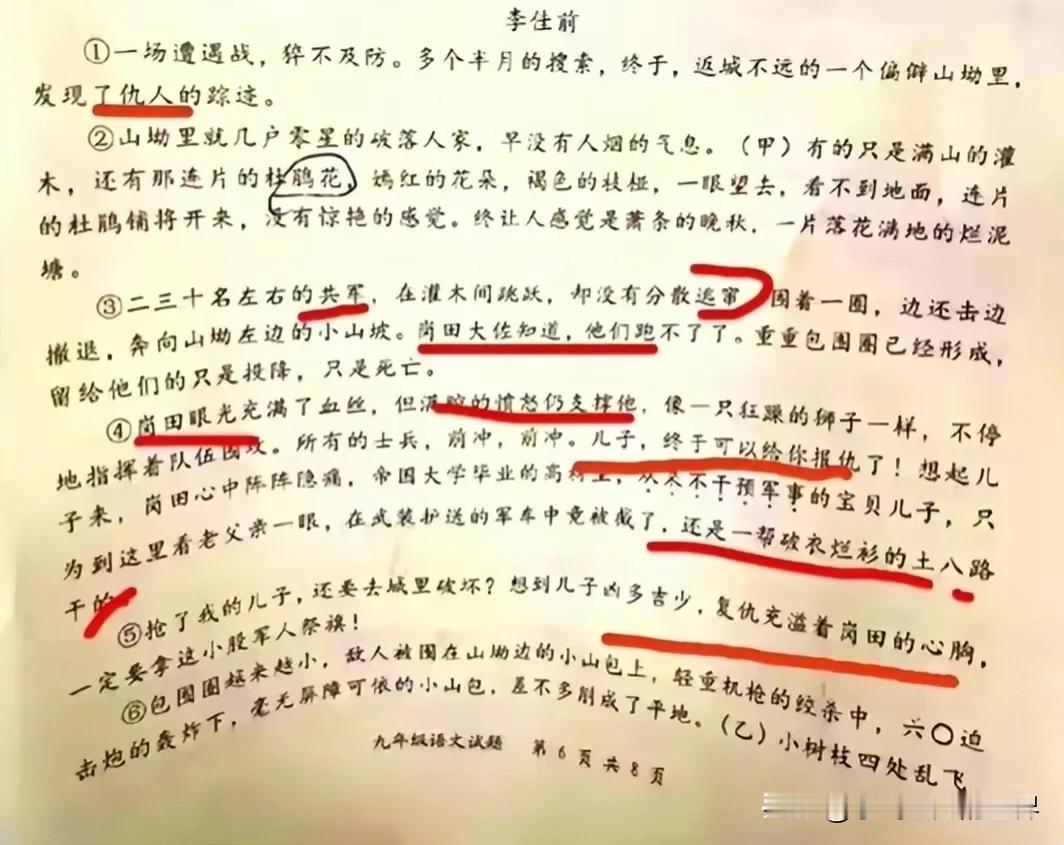 李佳前
①一场遭遇战，猝不及防。多个半月的搜索，终于，返城不远的一个偏僻山坳里，
发现了仇人的踪迹。
②山坳里就几户零星的破落人家，早没有人烟的气息。（甲）有的只是满山的灌
木，还有那连片的杜鹃花，嫣红的花朵，褐色的枝桠，一眼望去，看不到地面，连片
的杜鹃铺将开来，没有惊艳的感觉。终让人感觉是萧条的晚秋，一片落花满地的烂泥
塘。
③二三十名左右的共军，在灌木间跳跃，却没有分散逃窜，围着一圈，边还击边
撤退，奔向山坳左边的小山坡。岗田大佐知道，他们跑不了了。重重包围圈已经形成，
留给他们的只是投降，只是死亡。
④岗田眼光充满了血丝，但满腔的愤怒仍支撑他，像一只狂躁的狮子一样，不停
地指挥着队伍围攻。所有的士兵，前冲，前冲。儿子，终于可以给你报仇了！想起儿
子来，岗田心中阵阵隐痛，帝国大学毕业的高材生，从来不干预军事的宝贝儿子，只
为到这里看老父亲一眼，在武装护送的军车中竟被截了，还是一帮破衣烂衫的土八路
干的。
⑤抢了我的儿子，还要去城里破坏？想到儿子凶多吉少，复仇充溢着岗田的心胸，
一定要拿这小股军人祭旗！
⑥包围圈越来越小，敌人被围在山坳边的小山包上，轻重机枪的绞杀中，六〇迫
击炮的轰炸下，毫无屏障可依的小山包，差不多削成了平地。（乙）小树枝四处乱飞
九年级语文试题 第6页共8页